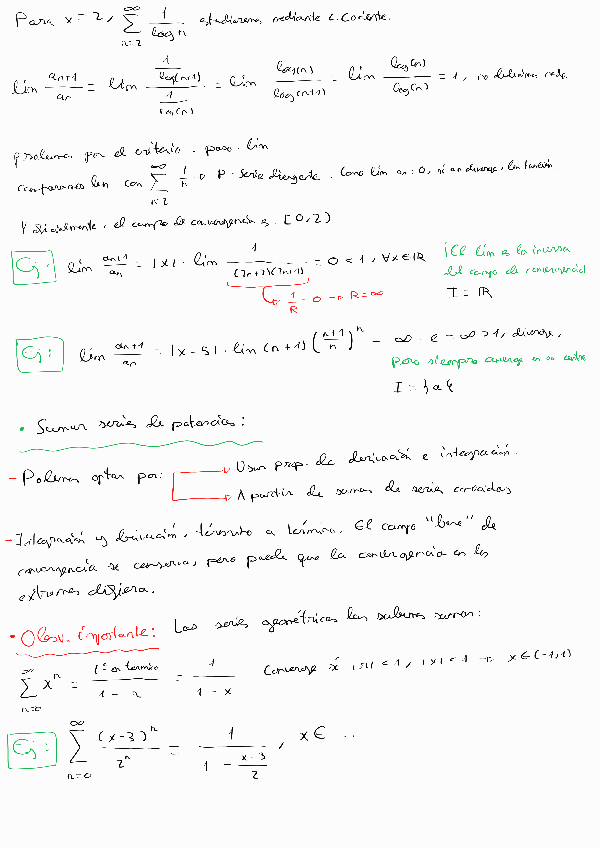 Para x = 2, ∑_{n=2}^{∞} 1/log n estudiaremos mediante c. cociente.
lím a_{n+1}/a_n = lím (1/log(n+1))/(1/log(n)) = lím log(n)/log(n+1) = lím log(n)/log(n) = 1, no
por el criterio . paso . lím
comparamos con ∑_{n=2}^{∞} 1/n → p-serie divergente. Como lím = 0, si an diverge, bn también
, el campo de convergencia es [0, 2)
Ej: lím a_{n+1}/a_n = |x| · lím 1/((2n+2)(2n+1)) = 0 < 1, ∀x ∈ ℝ ¡El lím es la inversa
del campo de convergencia!
1/R = 0 → R = ∞ I = ℝ
Ej: lím a_{n+1}/a_n = |x - 5| · lím (n+1) ((n+1)/n)^n = ∞ · e = ∞ > 1, diverge,
pero siempre converge en su centro
I = {a}
• Sumar series de potencias:
- Podemos optar por: Usar prop. de derivación e integración.
A partir de sumas de series conocidas
- Integración y derivación, término a término. El campo "base" de
convergencia se conserva, pero puede que la convergencia en los
extremos difiera.
• Obsv. importante: Las series geométricas las sabemos sumar:
∑_{n=0}^{∞} x^n = 1er término/(1 - r) = 1/(1 - x) Converge si |r| < 1, |x| < 1 → x ∈ (-1, 1)
Ej: ∑_{n=0}^{∞} (x-3)^n/2^n = 1/(1 - (x-3)/2), x ∈ ..